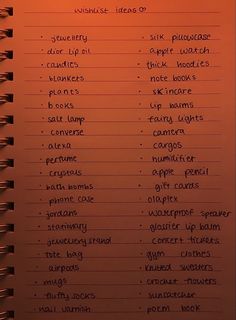 wishlist ideas ♡
· jewellery
· dior lip oil
· candles
· blankets
· plants
· books
· salt lamp
· converse
· alexa
· perfume
· crystals
· bath bombs
· phone case
· jordans
· stationary
· jewellery stand
· tote bag
· airpods
· mugs
· fluffy socks
nail varnish
· silk pillowcase
· apple watch
· thick hoodies
· note books
· skincare
· lip balms
· fairy lights
· camera
· cargos
· humidifier
· apple pencil
· gift cards
· olaplex
· waterproof speaker
· glossier lip balm
· concert tickets
· gym clothes
· knitted sweaters
· crochet flowers
· suncatcher
· poem book